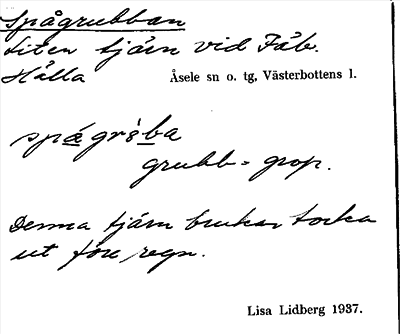 Spågrubban
Liten tjärn vid Fäb.
Hälla
Åsele sn o. tg, Västerbottens l.
grubb = grop.
Denna tjärn brukar torka
ut före regn.
Lisa Lidberg 1937.